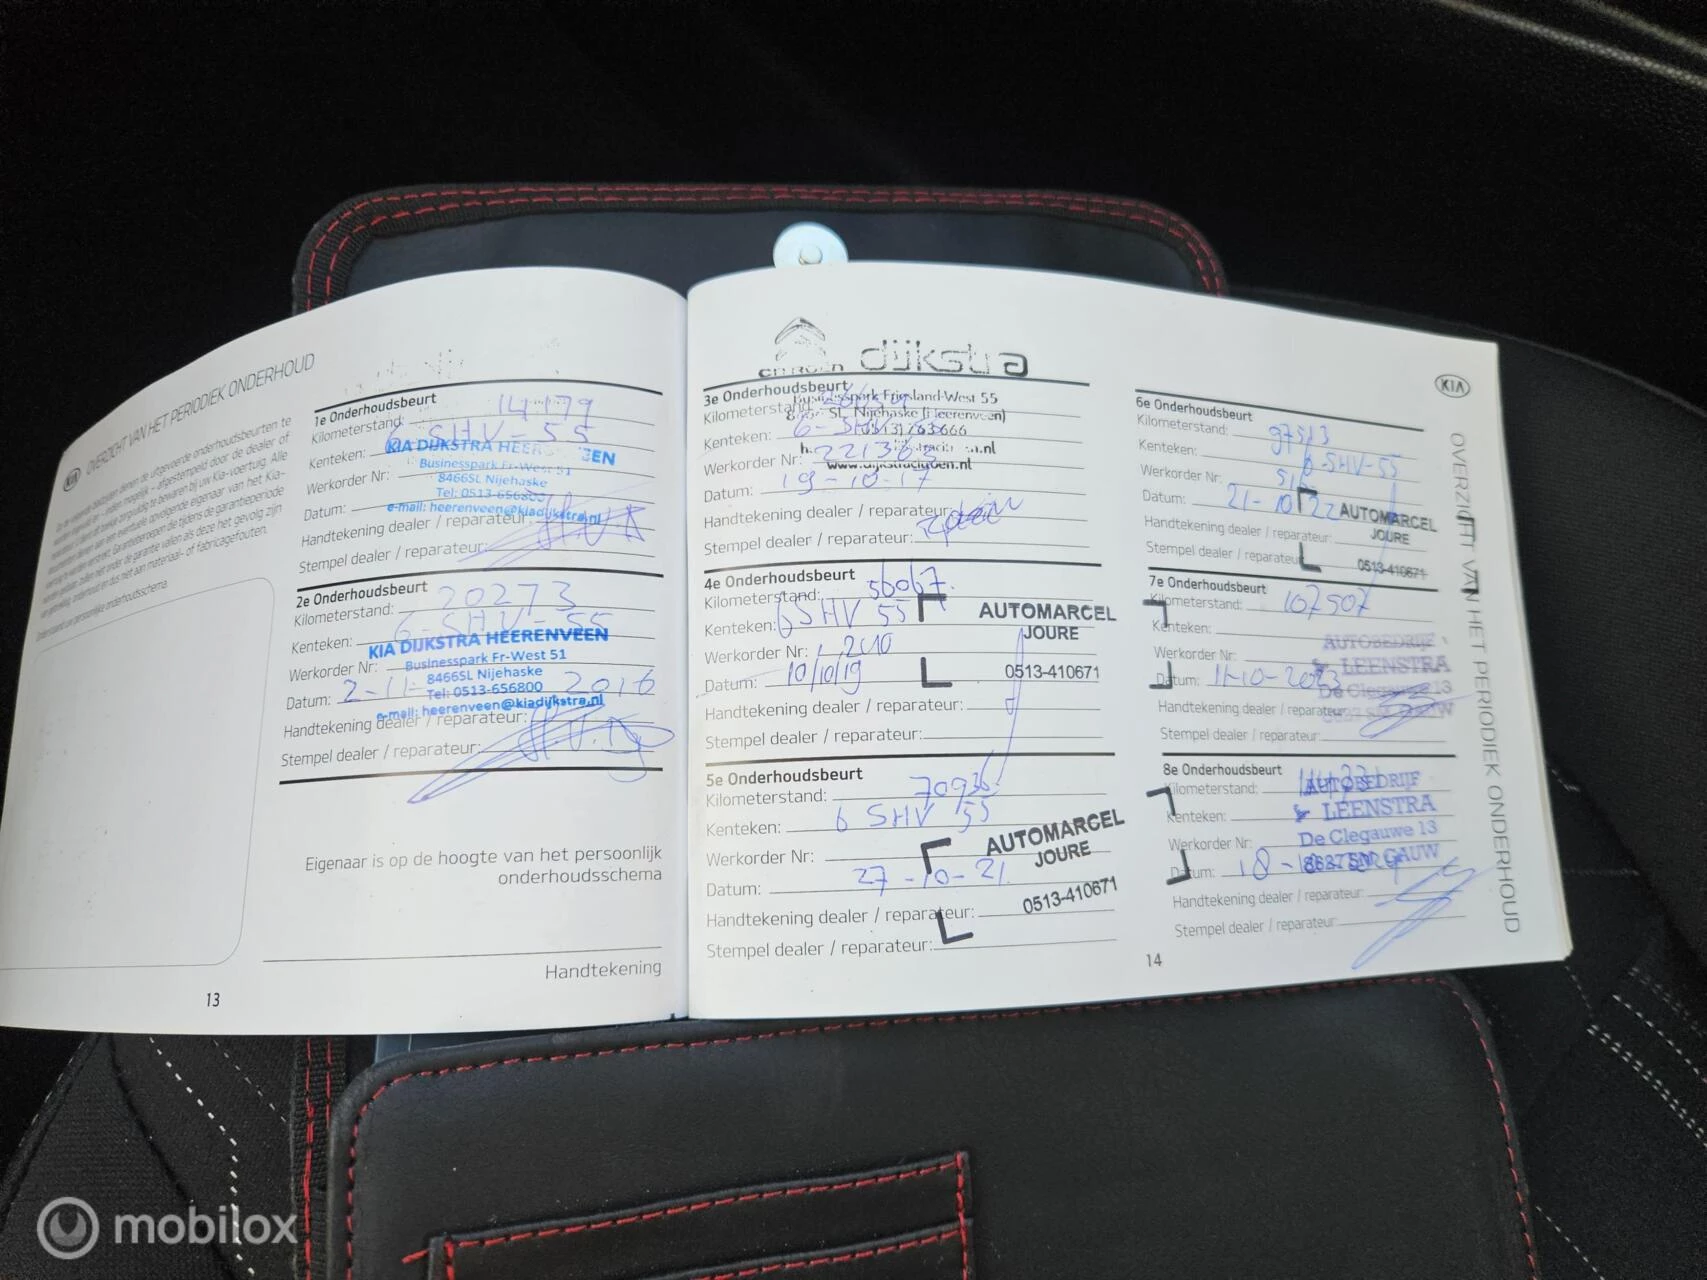 KIA
OVERZICHT VAN HET PERIODIEK ONDERHOUD
Onderstaand uw persoonlijke onderhoudsschema
1e Onderhoudsbeurt
Kilometerstand: 14179
Kenteken: 6-SHV-55
KIA DIJKSTRA HEERENVEEN
Businesspark Fr-West 51
8466SL Nijehaske
Tel: 0513-656800
e-mail: heerenveen@kiadijkstra.nl
Werkorder Nr:
Datum:
Handtekening dealer / reparateur:
Stempel dealer / reparateur:
2e Onderhoudsbeurt
Kilometerstand: 20273
Kenteken: 6-SHV-55
KIA DIJKSTRA HEERENVEEN
Businesspark Fr-West 51
8466SL Nijehaske
Tel: 0513-656800
e-mail: heerenveen@kiadijkstra.nl
Werkorder Nr:
Datum: 2-11-2016
Handtekening dealer / reparateur:
Stempel dealer / reparateur:
Eigenaar is op de hoogte van het persoonlijk
onderhoudsschema
Handtekening
13
CITROËN dijkstra
3e Onderhoudsbeurt
Businesspark Friesland-West 55
Kilometerstand:
SL Nijehaske (Heerenveen)
Kenteken: 6-SHV-55
763666
Werkorder Nr: 221363
www.dijkstracitroen.nl
Datum: 19-10-17
Handtekening dealer / reparateur:
Stempel dealer / reparateur:
4e Onderhoudsbeurt
Kilometerstand: 56067.
Kenteken: 6 SHV 55
AUTOMARCEL
JOURE
0513-410671
Werkorder Nr:
Datum: 10/10/19
Handtekening dealer / reparateur:
Stempel dealer / reparateur:
5e Onderhoudsbeurt
Kilometerstand: 70936
Kenteken: 6 SHV 55
AUTOMARCEL
JOURE
0513-410671
Werkorder Nr:
Datum: 27-10-21
Handtekening dealer / reparateur:
Stempel dealer / reparateur:
6e Onderhoudsbeurt
Kilometerstand: 97513
Kenteken: 6-SHV-55
Werkorder Nr:
Datum: 21-10-22
AUTOMARCEL
JOURE
0513-410671
Handtekening dealer / reparateur:
Stempel dealer / reparateur:
7e Onderhoudsbeurt
Kilometerstand: 107507
Kenteken:
AUTOBEDRIJF
LEENSTRA
De Clegauwe 13
Werkorder Nr:
Datum: 11-10-2023
Handtekening dealer / reparateur:
Stempel dealer / reparateur:
8e Onderhoudsbeurt
Kilometerstand:
AUTOBEDRIJF
LEENSTRA
De Clegauwe 13
GAUW
Kenteken:
Werkorder Nr:
Datum: 18-
Handtekening dealer / reparateur:
Stempel dealer / reparateur:
14
KIA
OVERZICHT VAN HET PERIODIEK ONDERHOUD
mobilox